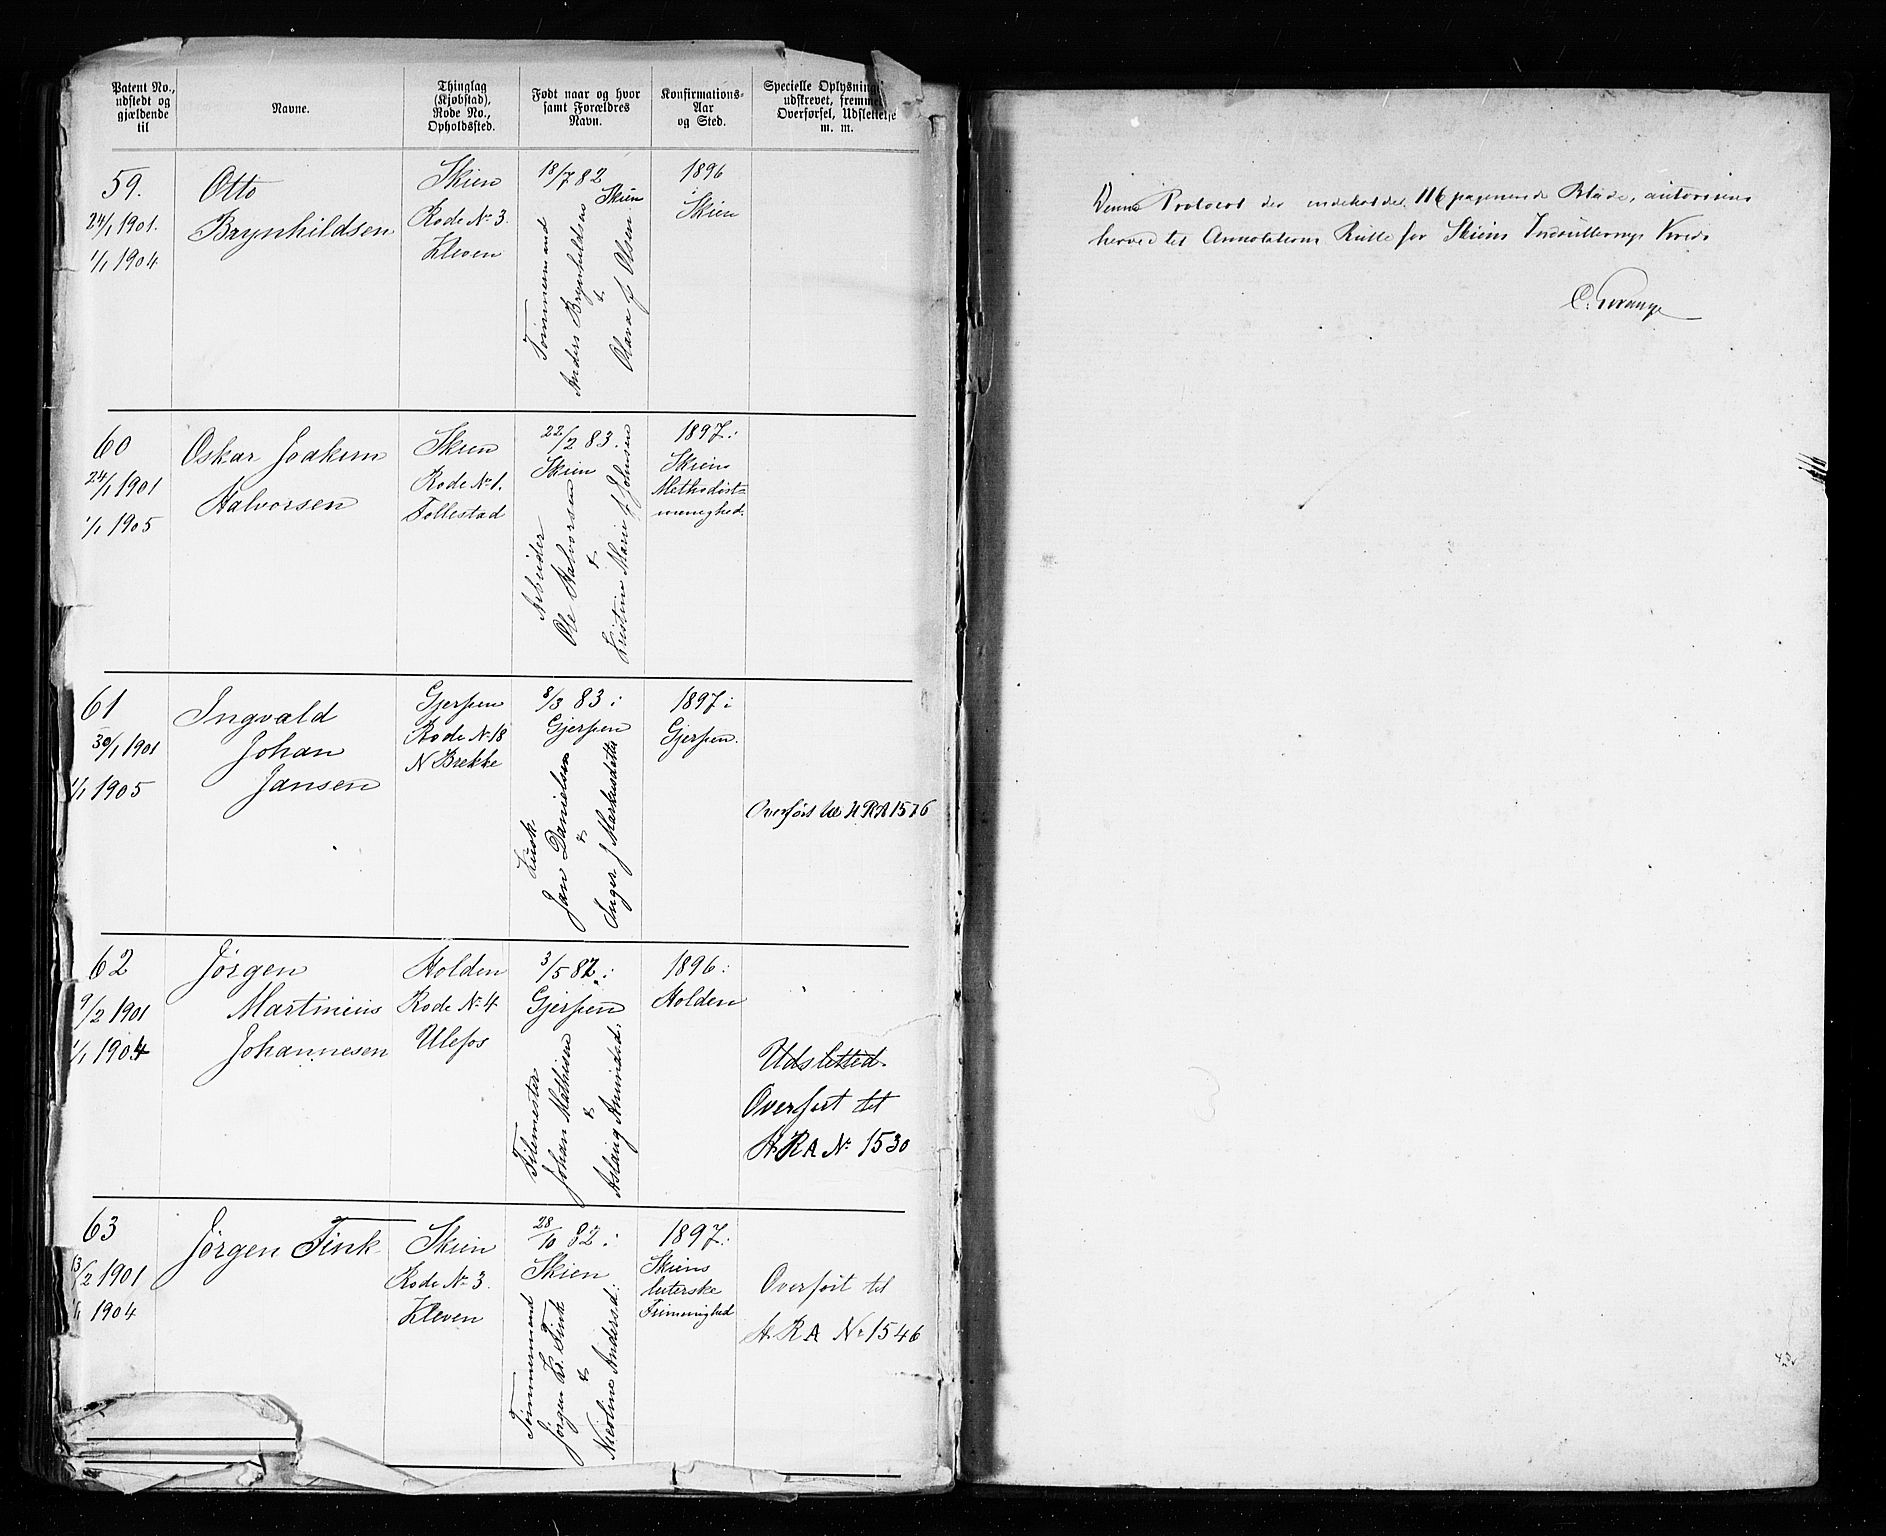 Patent No.,
udstedt og
gjældende
til
Navne.
Thinglag
(Kjøbstad),
Rode No.,
Opholdssted.
Født naar og hvor
samt Forældres
Navn.
Konfirmations-
Aar
og Sted.
Specielle Oplysning
udskrevet, fremme
Overførsel, Udslettelse
m. m.
59.
24/1 1901.
1/1 1904
Otto
Brynhildsen
Skien
Rode No 3.
Kleven
18/7 82
Skien
Tømmermand
Anders Brynhildsen
&
Olava f Olsen
1896
i
Skien
60
24/1 1901
1/1 1905
Oskar Joakim
Halvorsen
Skien
Rode No 1.
Follestad
22/2 83.
Skien
Arbeider
Ole Halvorsen
&
Kristine Marie f Johnsen
1897:
Skiens
Methodist-
menighed.
61
30/1 1901
1/1 1905
Ingvald
Johan
Jansen
Gjerpen
Rode No 18
N Brekke
8/3 83 i
Gjerpen
Kusk
Jan Danielsen
&
Inger f Markusdatter
1897 i
Gjerpen.
Overført til H RA 1576
62
9/2 1901
1/1 1904
Jørgen
Martinius
Johannesen
Holden
Rode No 4
Ulefos
3/5 82 i
Gjerpen
Filemester
Johan Mathisen
&
Aslaug Amundsd.
1896:
Holden
Udsletted.
Overført til
H. RA No 1530
63
13/2 1901
1/1 1904
Jørgen Fink
Skien
Rode No 3.
Kleven
28/10 82 i
Skien
Tømmermand
Jørgen Kr. Fink
&
Nicoline Andersd.
1897:
Skiens
luterske
Frimenighed
Overført til
H. RA No 1546
Denne Protocol der indeholder 116 paginerede Blade, autoriseres
herved til Annotations Rulle for Skiens Indrullerings Kreds